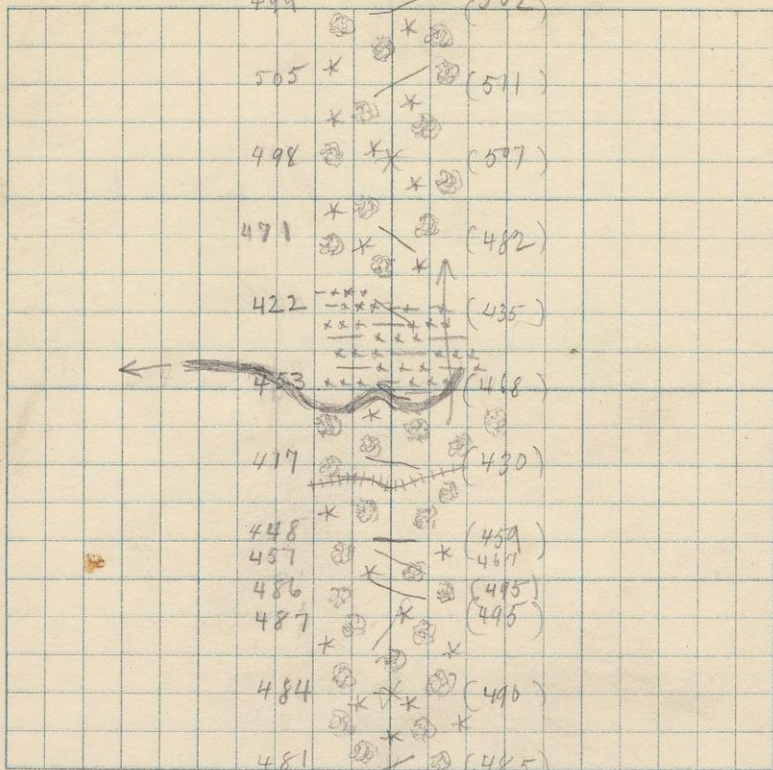 499 (502)
505 (511)
498 (507)
471 (482)
422 (435)
453 (468)
417 (430)
448 (459)
457 467
486 (495)
487 (495)
484 (490)
481 (485)